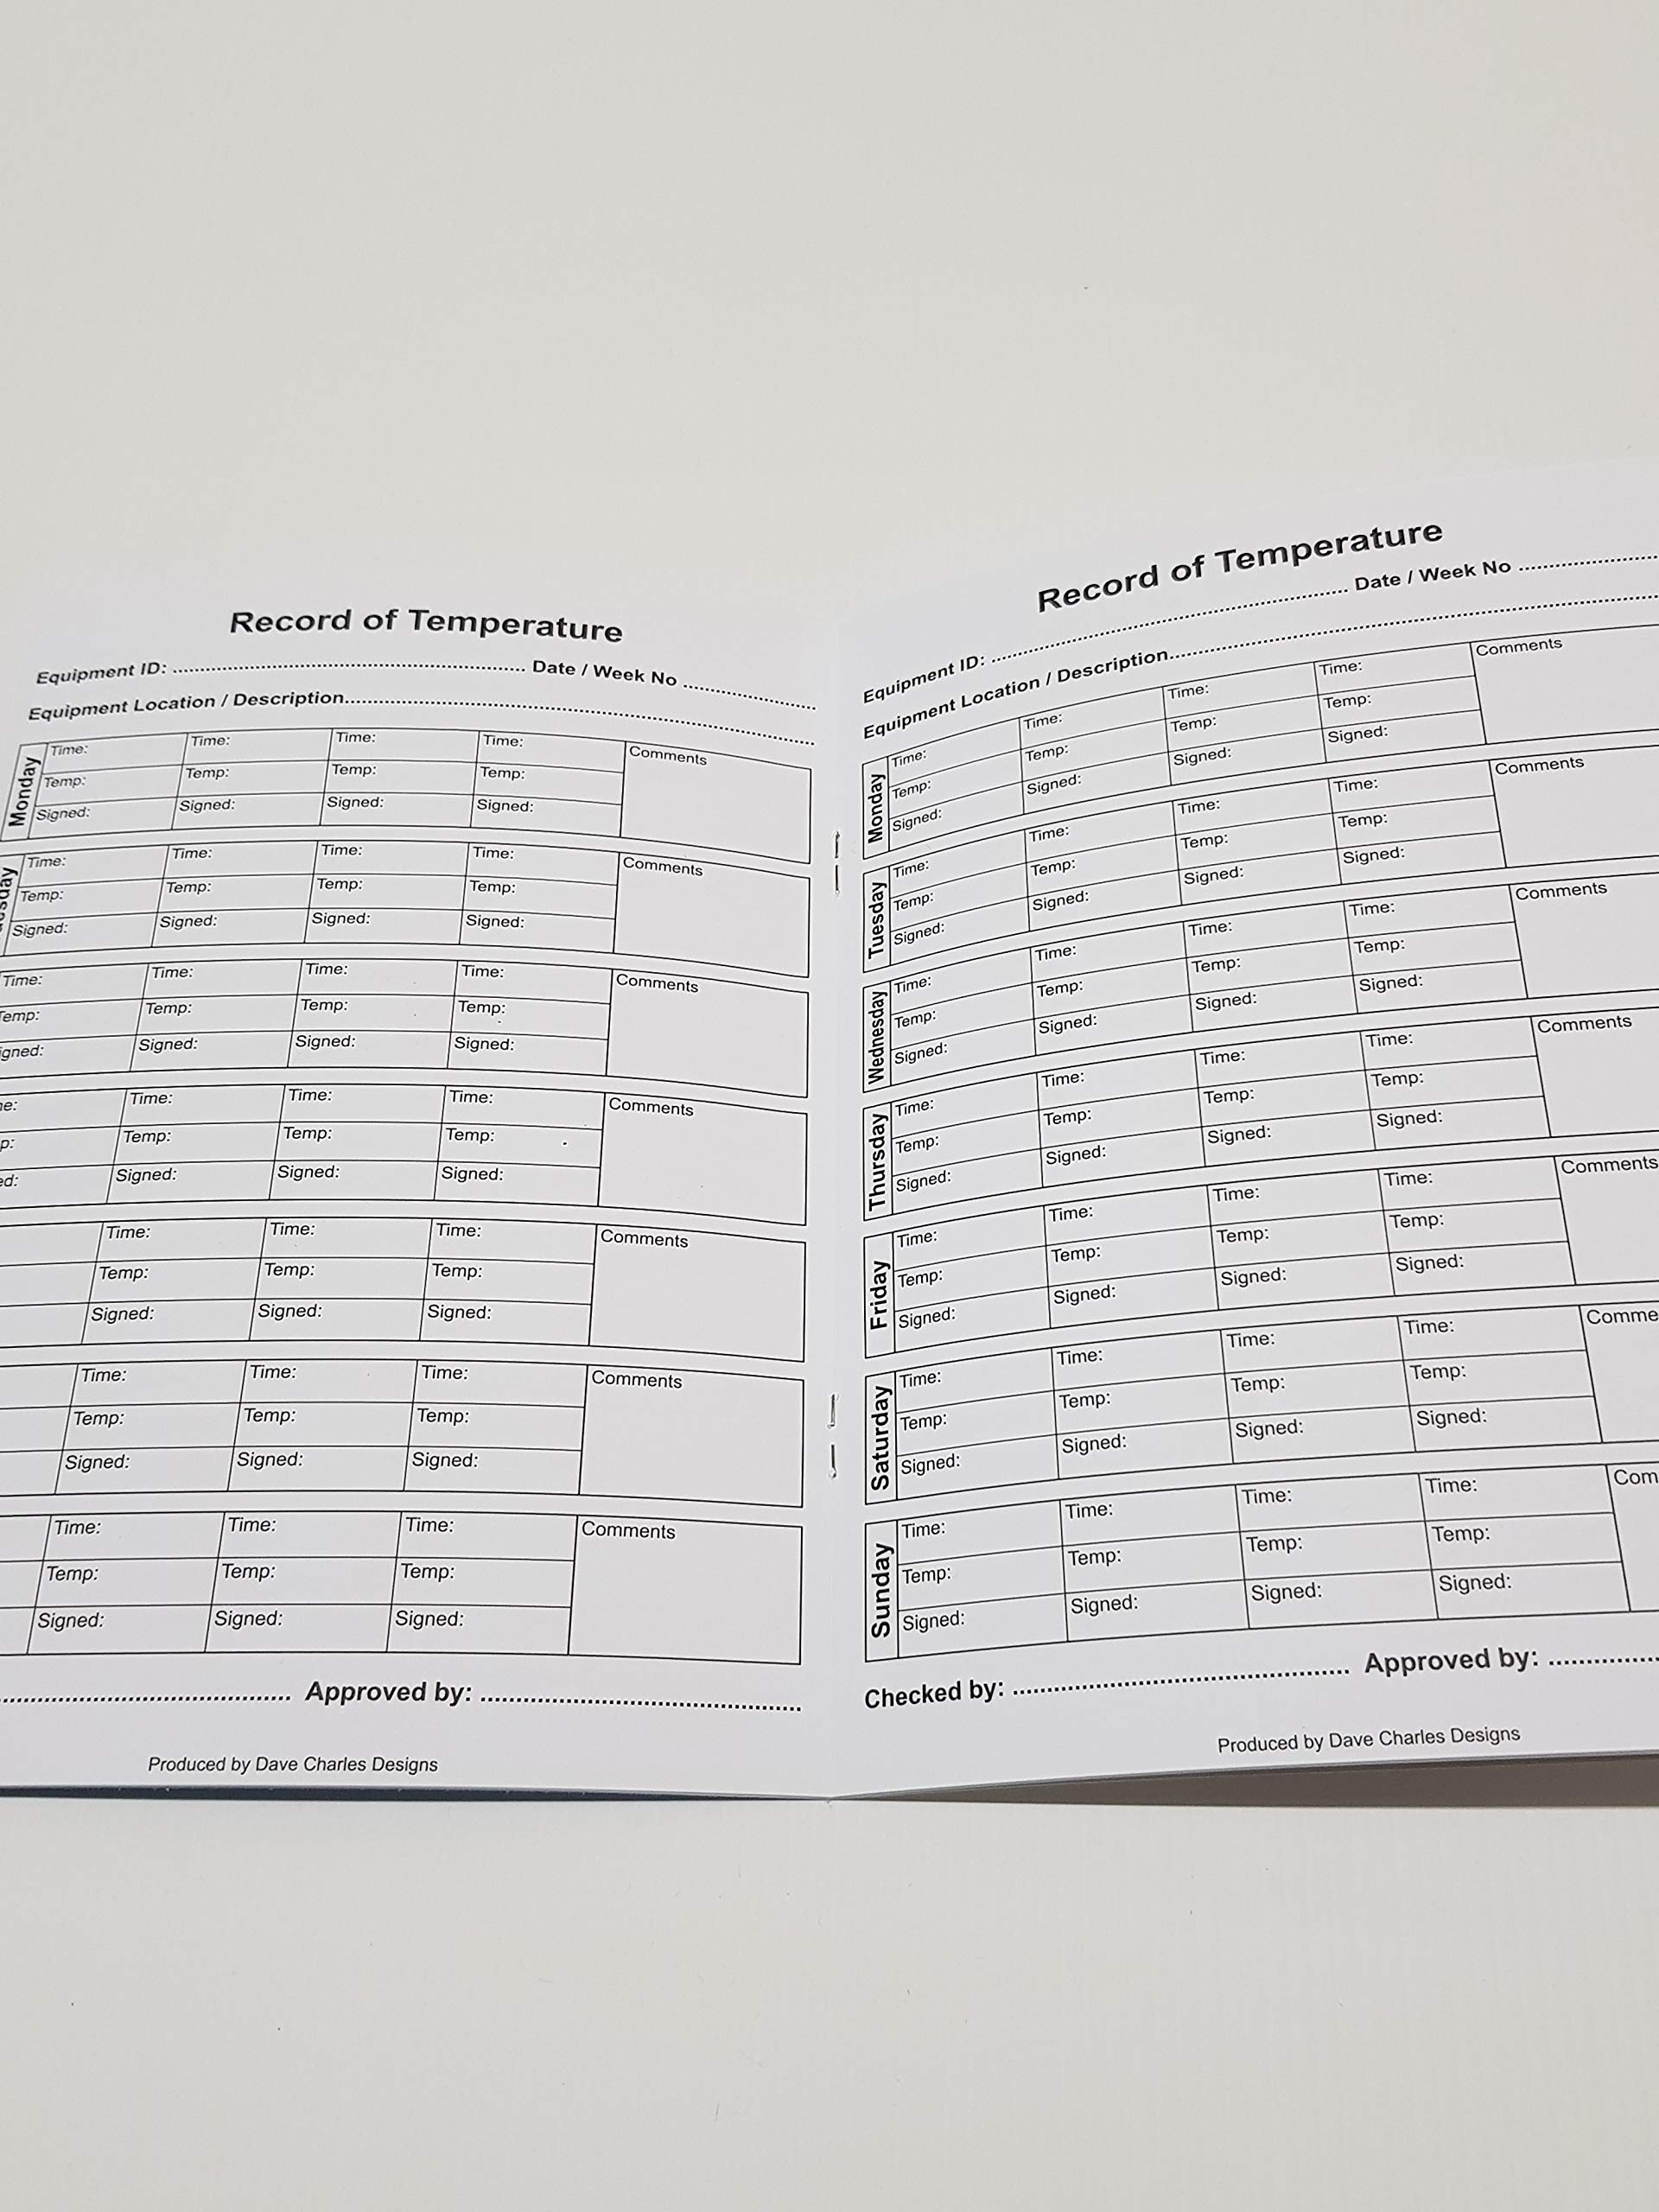 Record of Temperature
Equipment ID: .......... Date / Week No ..........
Equipment Location / Description..........
Monday
Time: Time: Time: Time: Comments
Temp: Temp: Temp: Temp:
Signed: Signed: Signed: Signed:
esday
Time: Time: Time: Time: Comments
Temp: Temp: Temp: Temp:
Signed: Signed: Signed: Signed:
Time: Time: Time: Time: Comments
Temp: Temp: Temp: Temp:
igned: Signed: Signed: Signed:
ne: Time: Time: Time: Comments
p: Temp: Temp: Temp:
ed: Signed: Signed: Signed:
Time: Time: Time: Comments
Temp: Temp: Temp:
Signed: Signed: Signed:
Time: Time: Time: Comments
Temp: Temp: Temp:
Signed: Signed: Signed:
Time: Time: Time: Comments
Temp: Temp: Temp:
Signed: Signed: Signed:
.......... Approved by: ..........
Produced by Dave Charles Designs
Record of Temperature
Equipment ID: .......... Date / Week No ..........
Equipment Location / Description..........
Monday
Time: Time: Time: Time: Comments
Temp: Temp: Temp: Temp:
Signed: Signed: Signed: Signed:
Tuesday
Time: Time: Time: Time: Comments
Temp: Temp: Temp: Temp:
Signed: Signed: Signed: Signed:
Wednesday
Time: Time: Time: Time: Comments
Temp: Temp: Temp: Temp:
Signed: Signed: Signed: Signed:
Thursday
Time: Time: Time: Time: Comments
Temp: Temp: Temp: Temp:
Signed: Signed: Signed: Signed:
Friday
Time: Time: Time: Time: Comments
Temp: Temp: Temp: Temp:
Signed: Signed: Signed: Signed:
Saturday
Time: Time: Time: Time: Comme
Temp: Temp: Temp: Temp:
Signed: Signed: Signed: Signed:
Sunday
Time: Time: Time: Time: Com
Temp: Temp: Temp: Temp:
Signed: Signed: Signed: Signed:
Checked by: .......... Approved by: ..........
Produced by Dave Charles Designs